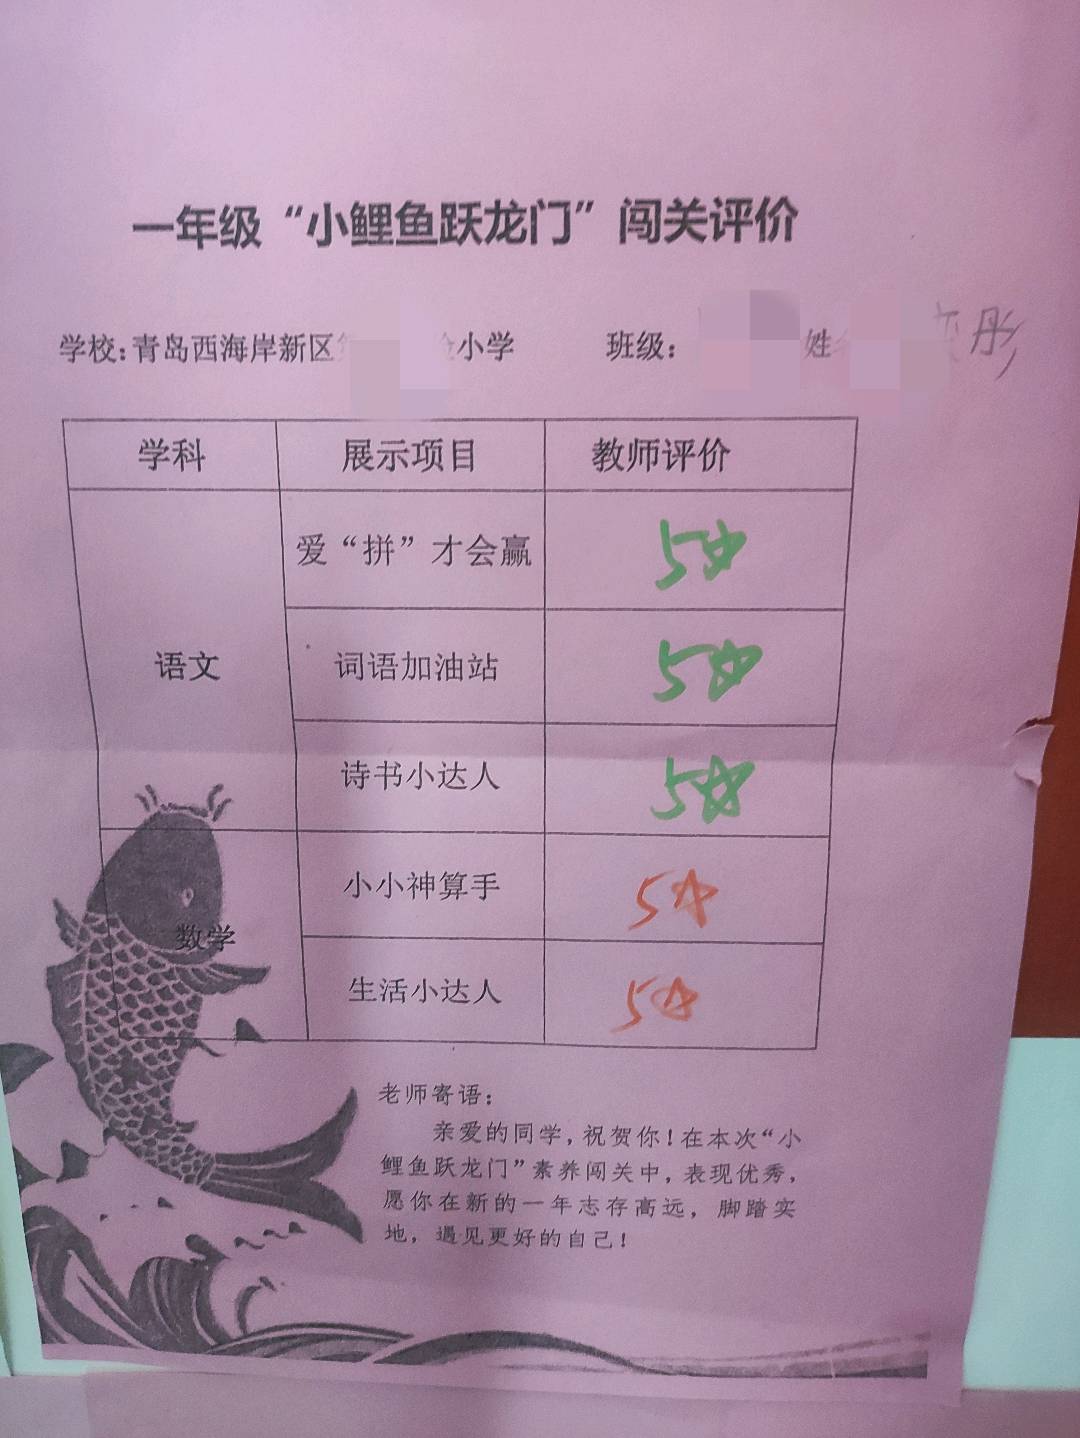 一年级“小鲤鱼跃龙门”闯关评价
学校:青岛西海岸新区 小学 班级: 姓 彤
学科 展示项目 教师评价
语文
爱“拼”才会赢 5☆
词语加油站 5☆
诗书小达人 5☆
数学
小小神算手 5☆
生活小达人 5☆
老师寄语:
亲爱的同学,祝贺你!在本次“小
鲤鱼跃龙门”素养闯关中,表现优秀,
愿你在新的一年志存高远,脚踏实
地,遇见更好的自己!